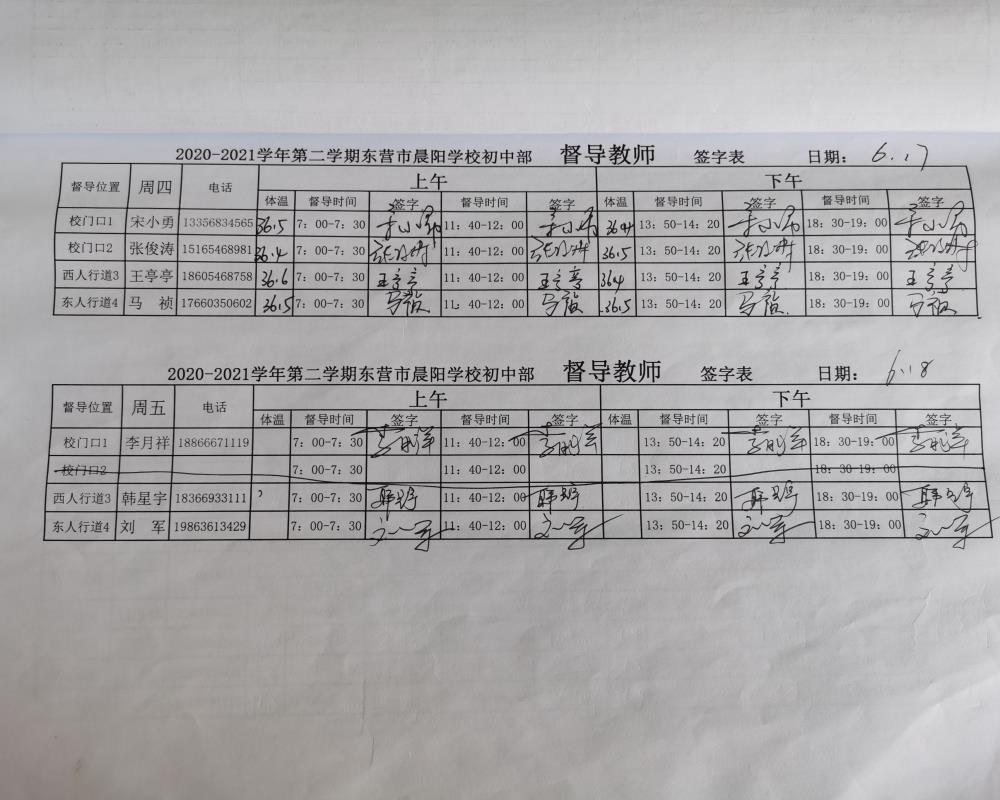 2020-2021学年第二学期东营市晨阳学校初中部 督导教师 签字表 日期： 6.17
督导位置 周四 电话 上午 下午
体温 督导时间 签字 督导时间 签字 体温 督导时间 签字 督导时间 签字
校门口1 宋小勇 13356834565 36.5 7：00-7：30 宋小勇 11：40-12：00 宋小勇 36.4 13：50-14：20 宋小勇 18：30-19：00 宋小勇
校门口2 张俊涛 15165468981 36.4 7：00-7：30 张俊涛 11：40-12：00 张俊涛 36.5 13：50-14：20 张俊涛 18：30-19：00 张俊涛
西人行道3 王亭亭 18605468758 36.6 7：00-7：30 王亭亭 11：40-12：00 王亭亭 364 13：50-14：20 王亭亭 18：30-19：00 王亭亭
东人行道4 马 祯 17660350602 36.5 7：00-7：30 马祯 11：40-12：00 马祯 36.5 13：50-14：20 马祯 18：30-19：00 马祯
2020-2021学年第二学期东营市晨阳学校初中部 督导教师 签字表 日期： 6.18
督导位置 周五 电话 上午 下午
体温 督导时间 签字 督导时间 签字 体温 督导时间 签字 督导时间 签字
校门口1 李月祥 18866671119 7：00-7：30 李月祥 11：40-12：00 李月祥 13：50-14：20 李月祥 18：30-19：00 李月祥
校门口2 7：00-7：30 11：40-12：00 13：50-14：20 18：30-19：00
西人行道3 韩星宇 18366933111 7：00-7：30 韩星宇 11：40-12：00 韩星宇 13：50-14：20 韩星宇 18：30-19：00 韩星宇
东人行道4 刘 军 19863613429 7：00-7：30 刘军 11：40-12：00 刘军 13：50-14：20 刘军 18：30-19：00 刘军